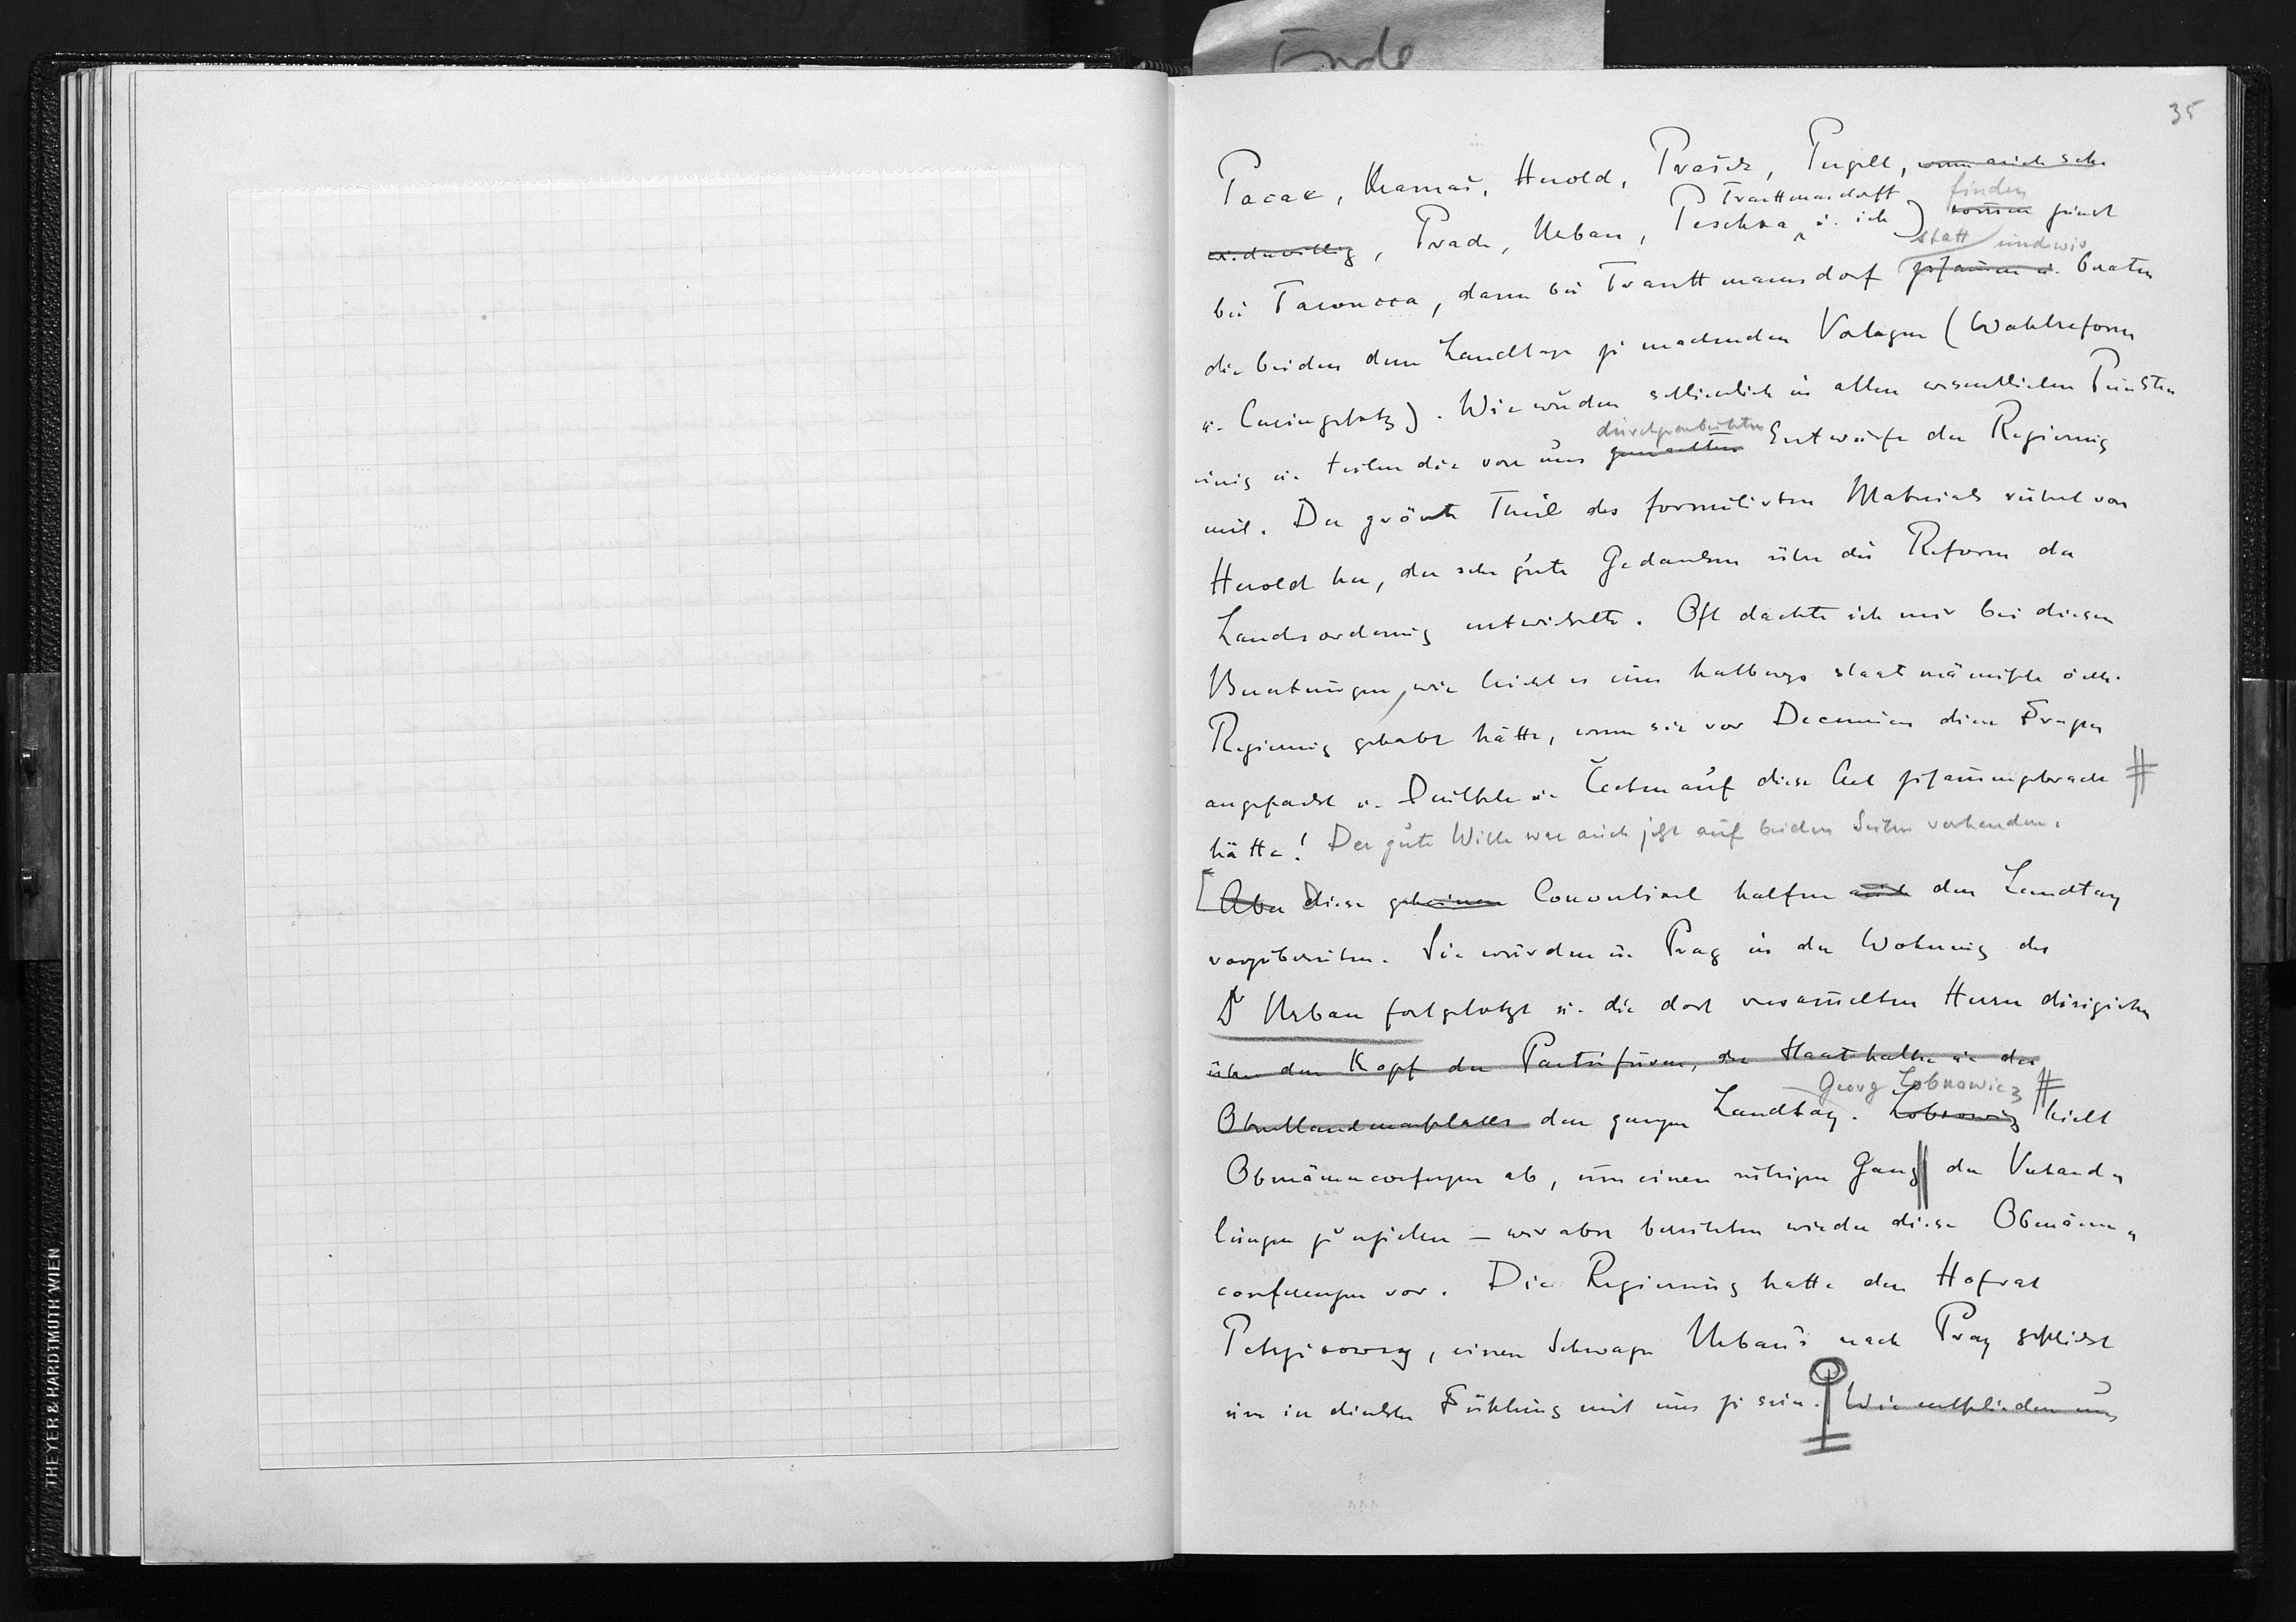 Ende
35
Pacak, Kramař, Herold, Prašek, Pergelt, wenn auch sehr
widerwillig, Prade, Urban, Peschka, Trauttmansdorff u. ich) finden zuerst
bei Taroucca, dann bei Trauttmannsdorf statt und wir zusammen u. beraten
die beiden dem Landtage zu machenden Vorlagen (Wahlreform
u. Curiengesetz). Wir wurden schliesslich in allen wesentlichen Punkten
einig u. teilen die von uns durchgearbeiteten gemachten Entwürfe der Regierung
mit. Der grösste Theil des formulirten Materials rührt von
Herold her, der sehr gute Gedanken über die Reform der
Landesordnung entwickelte. Oft dachte ich mir bei diesen
Beratungen, wie leicht es eine halbwegs staatmännische österr.
Regierung gehabt hätte, wenn sie vor Decennien diese Fragen
angepackt u. Deutsche u. Čechen auf diese Art zusammengebracht #
hätte! Der gute Wille war auch jetzt auf beiden Seiten vorhanden.
[Aber Diese geheimen Conventikel halfen auch den Landtag
vorzubereiten. Sie wurden in Prag in der Wohnung des
Dr Urban fortgesetzt u. die dort versammelten Herren dirigirten
über den Kopf der Parteifürer, der Statthalter u. des
Oberstlandmarschalles den ganzen Landtag. Georg Lobkowicz Lobkowitz # hielt
Obmännerconferenzen ab, um einen ruhigen Gang der Verhand-
lungen zu erzielen – wir aber bereiteten wieder diese Obmänner-
conferenzen vor. Die Regierung hatte den Hofrat
um in direkter Fühlung mit uns zu sein. Wir entschieden uns
THEYER & HARDTMUTH WIEN